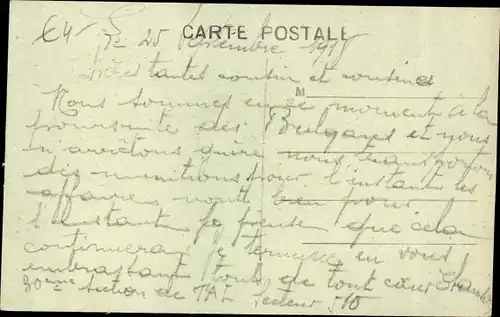 CARTE POSTALE
le 25 Septembre 1918
tantes cousin et cousines
M
Nous sommes en ce moment à la
poursuite des Bulgares et nous
n'arrêtons guère nous transportons
des munitions pour l'instant les
affaires vont bien pour
l'instant je pense que cela
continuera je termine en vous
embrassant tous de tout cœur
30ème section de TAL Secteur 510